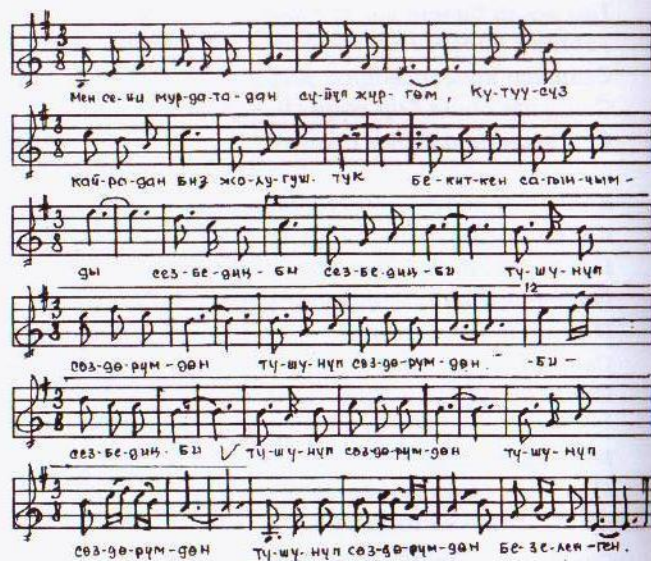 Мен се-ни мур-да-та-дан сү-йүп жүр-гөм, Кү-түү-сүз
кай-ра-дан биз жо-лу-гуш-тук Бе-кит-кен са-гын-чым-
ды сез-бе-диң-би сез-бе-диң-би тү-шү-нүп
сөз-дө-рүм-дөн тү-шү-нүп сөз-дө-рүм-дөн -би-
сез-бе-диң-би тү-шү-нүп сөз-дө-рүм-дөн тү-шү-нүп
сөз-дө-рүм-дөн тү-шү-нүп сөз-дө-рүм-дөн Бе-зе-лен-ген.